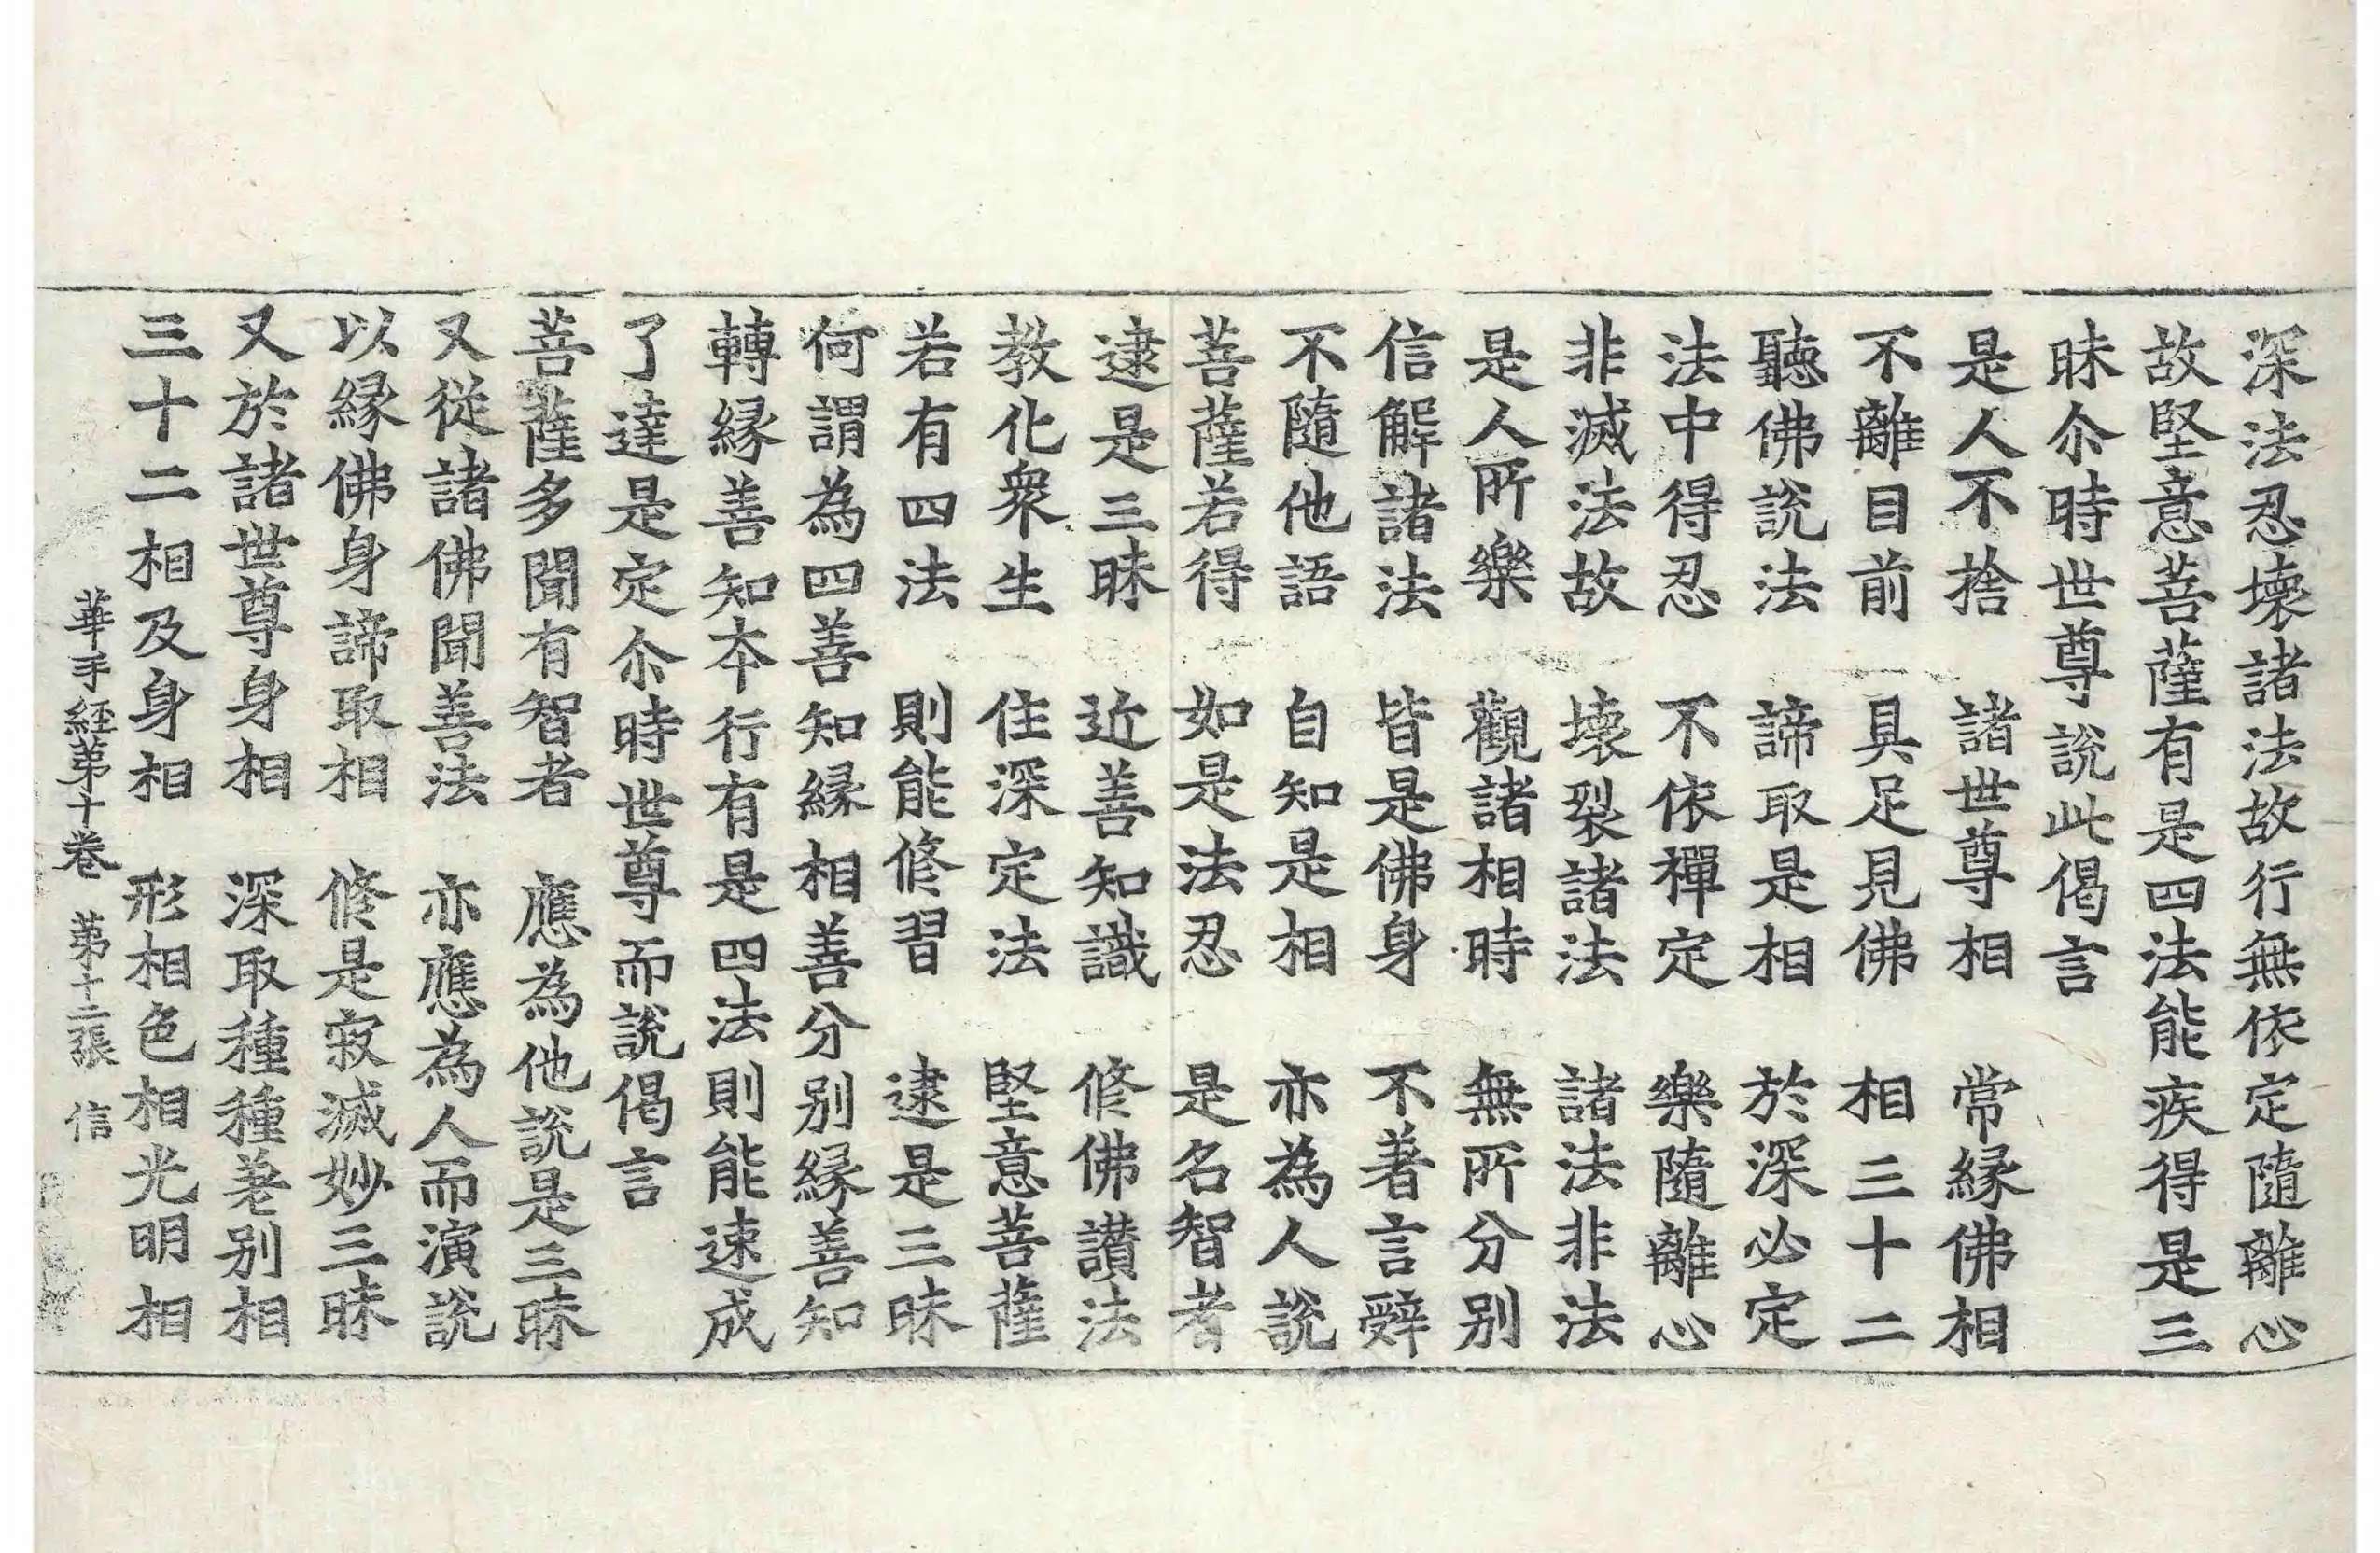 深法忍壞諸法故行無依定隨離心
故堅意菩薩有是四法能疾得是三
昧尒時世尊說此偈言
是人不捨　諸世尊相　常緣佛相
不離目前　具足見佛　相三十二
聽佛說法　諦取是相　於深必定
法中得忍　不依禪定　樂隨離心
非滅法故　壞裂諸法　諸法非法
是人所樂　觀諸相時　無所分別
信解諸法　皆是佛身　不著言辭
不隨他語　自知是相　亦為人說
菩薩若得　如是法忍　是名智者
逮是三昧　近善知識　修佛讃法
教化衆生　住深定法　堅意菩薩
若有四法　則能修習　逮是三昧
何謂為四善知緣相善分別緣善知
轉緣善知本行有是四法則能速成
了達是定尒時世尊而說偈言
菩薩多聞有智者　應為他說是三昧
又從諸佛聞善法　亦應為人而演說
以緣佛身諦取相　修是寂滅妙三昧
又於諸世尊身相　深取種種差別相
三十二相及身相　形相色相光明相
華手經第十卷　第十二張　信